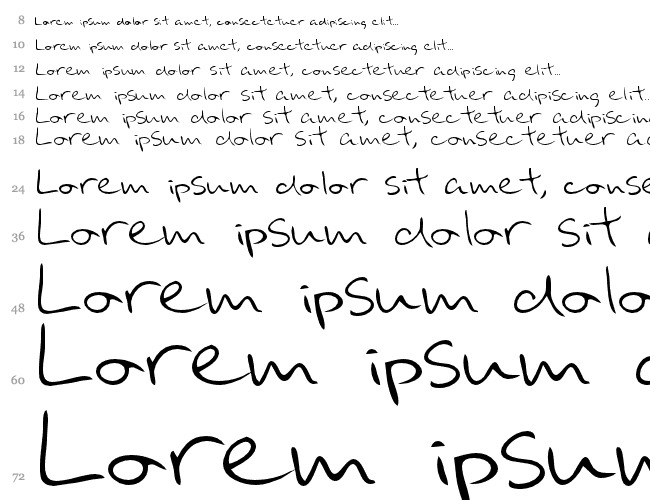 8 Lorem ipsum dolor sit amet, consectetuer adipiscing elit...
10 Lorem ipsum dolor sit amet, consectetuer adipiscing elit...
12 Lorem ipsum dolor sit amet, consectetuer adipiscing elit...
14 Lorem ipsum dolor sit amet, consectetuer adipiscing elit..
16 Lorem ipsum dolor sit amet, consectetuer adipiscing
18 Lorem ipsum dolor sit amet, consectetuer ad
24 Lorem ipsum dolor sit amet, conse
36 Lorem ipsum dolor sit
48 Lorem ipsum dolo
60 Lorem ipsum
72 Lorem ipsum